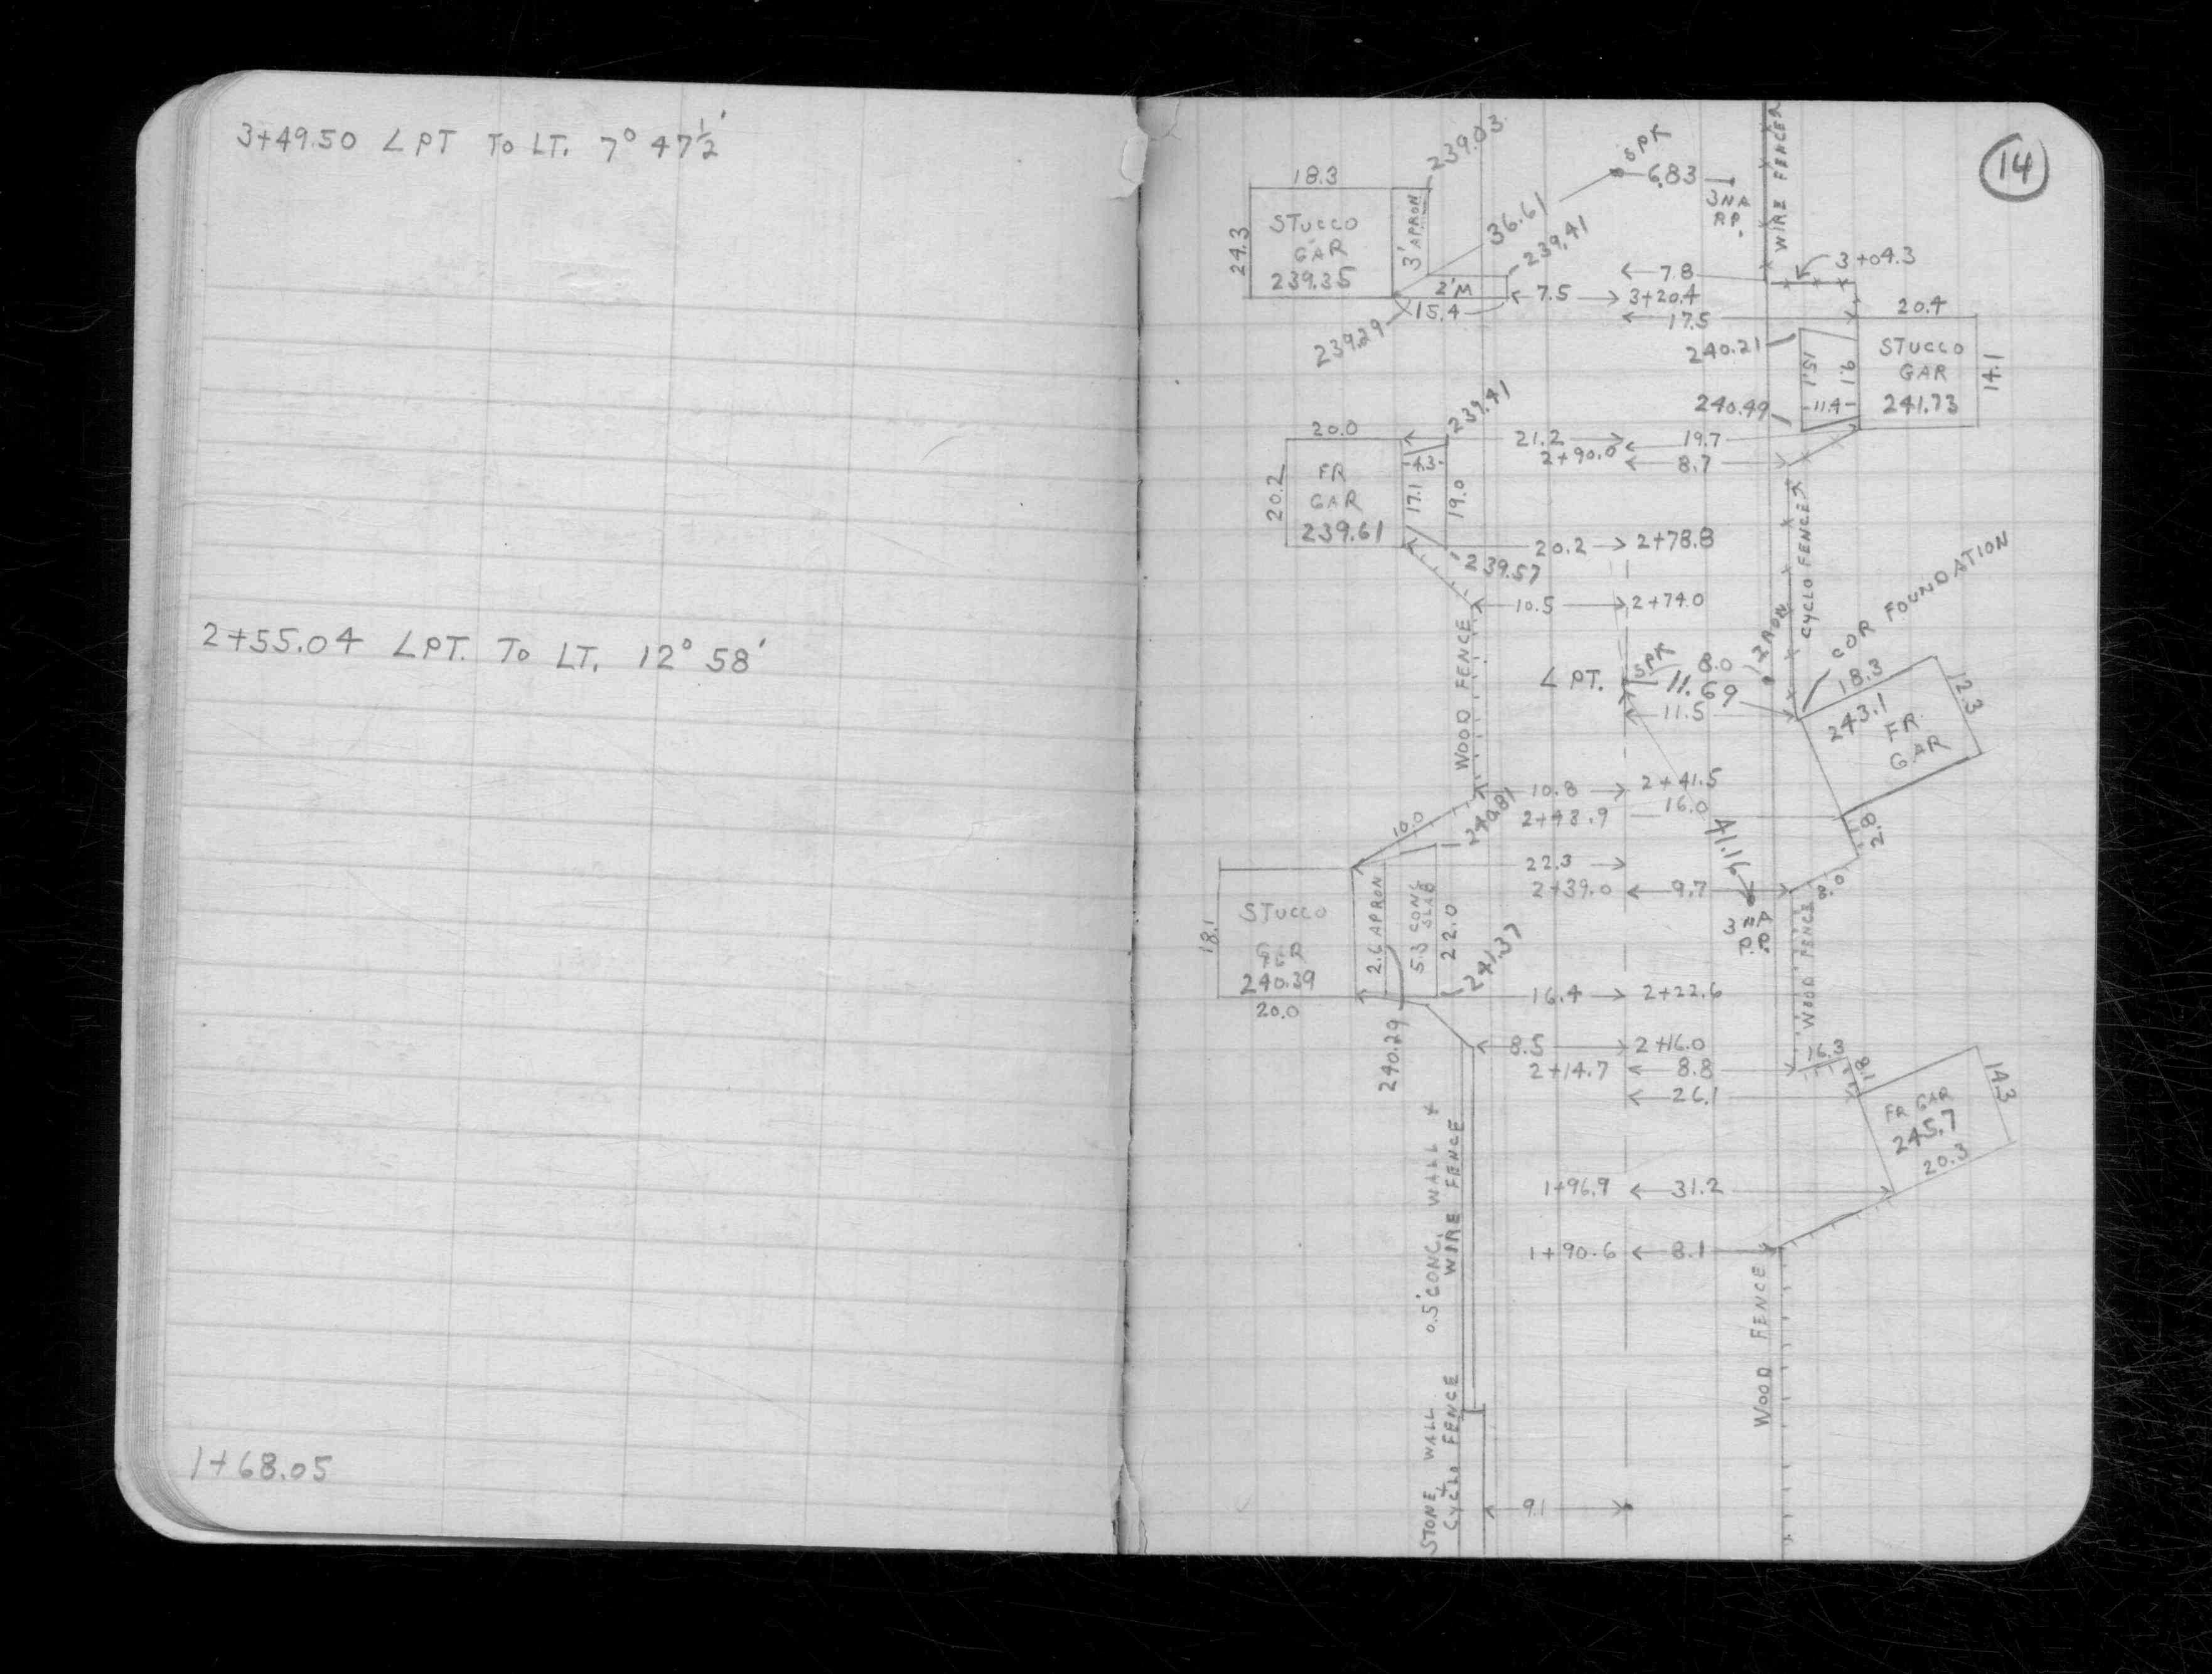 3+49.50 ∠ PT TO LT. 7° 47½'
2+55.04 ∠ PT. TO LT. 12° 58'
1+68.05
14
239.03
SPK
6.83
3NA
WIRE FENCE
18.3
STUCCO
GAR
239.35
24.3
3' APRON
36.61
239.41
7.8
3+04.3
2'M
7.5
3+20.4
15.4
17.5
20.4
239.29
240.21
15.1
9.1
STUCCO
GAR
241.73
14.1
240.49
11.4
239.41
20.0
21.2
19.7
2+90.0
8.7
FR
GAR
239.61
20.2
4.3
17.1
19.0
CYCLO FENCE
20.2
2+78.8
239.57
10.5
2+74.0
COR FOUNDATION
WOOD FENCE
∠ PT.
SPK
8.0
11.69
11.5
18.3
12.3
243.1
FR
GAR
10.8
2+41.5
2+48.9
16.0
10.0
240.81
41.16
2.8
22.3
2+39.0
9.7
8.0
STUCCO
GAR
240.39
18.1
20.0
2.6 APRON
5.3 CONC
SLAB
22.0
241.37
3 NA
P.P.
WOOD FENCE
16.4
2+22.6
240.29
8.5
2+16.0
2+14.7
8.8
26.1
16.3
1.8
FR GAR
245.7
20.3
14.3
0.5' CONC. WALL +
WIRE FENCE
1+96.9
31.2
1+90.6
8.1
WOOD FENCE
STONE WALL
+
CYCLO FENCE
9.1